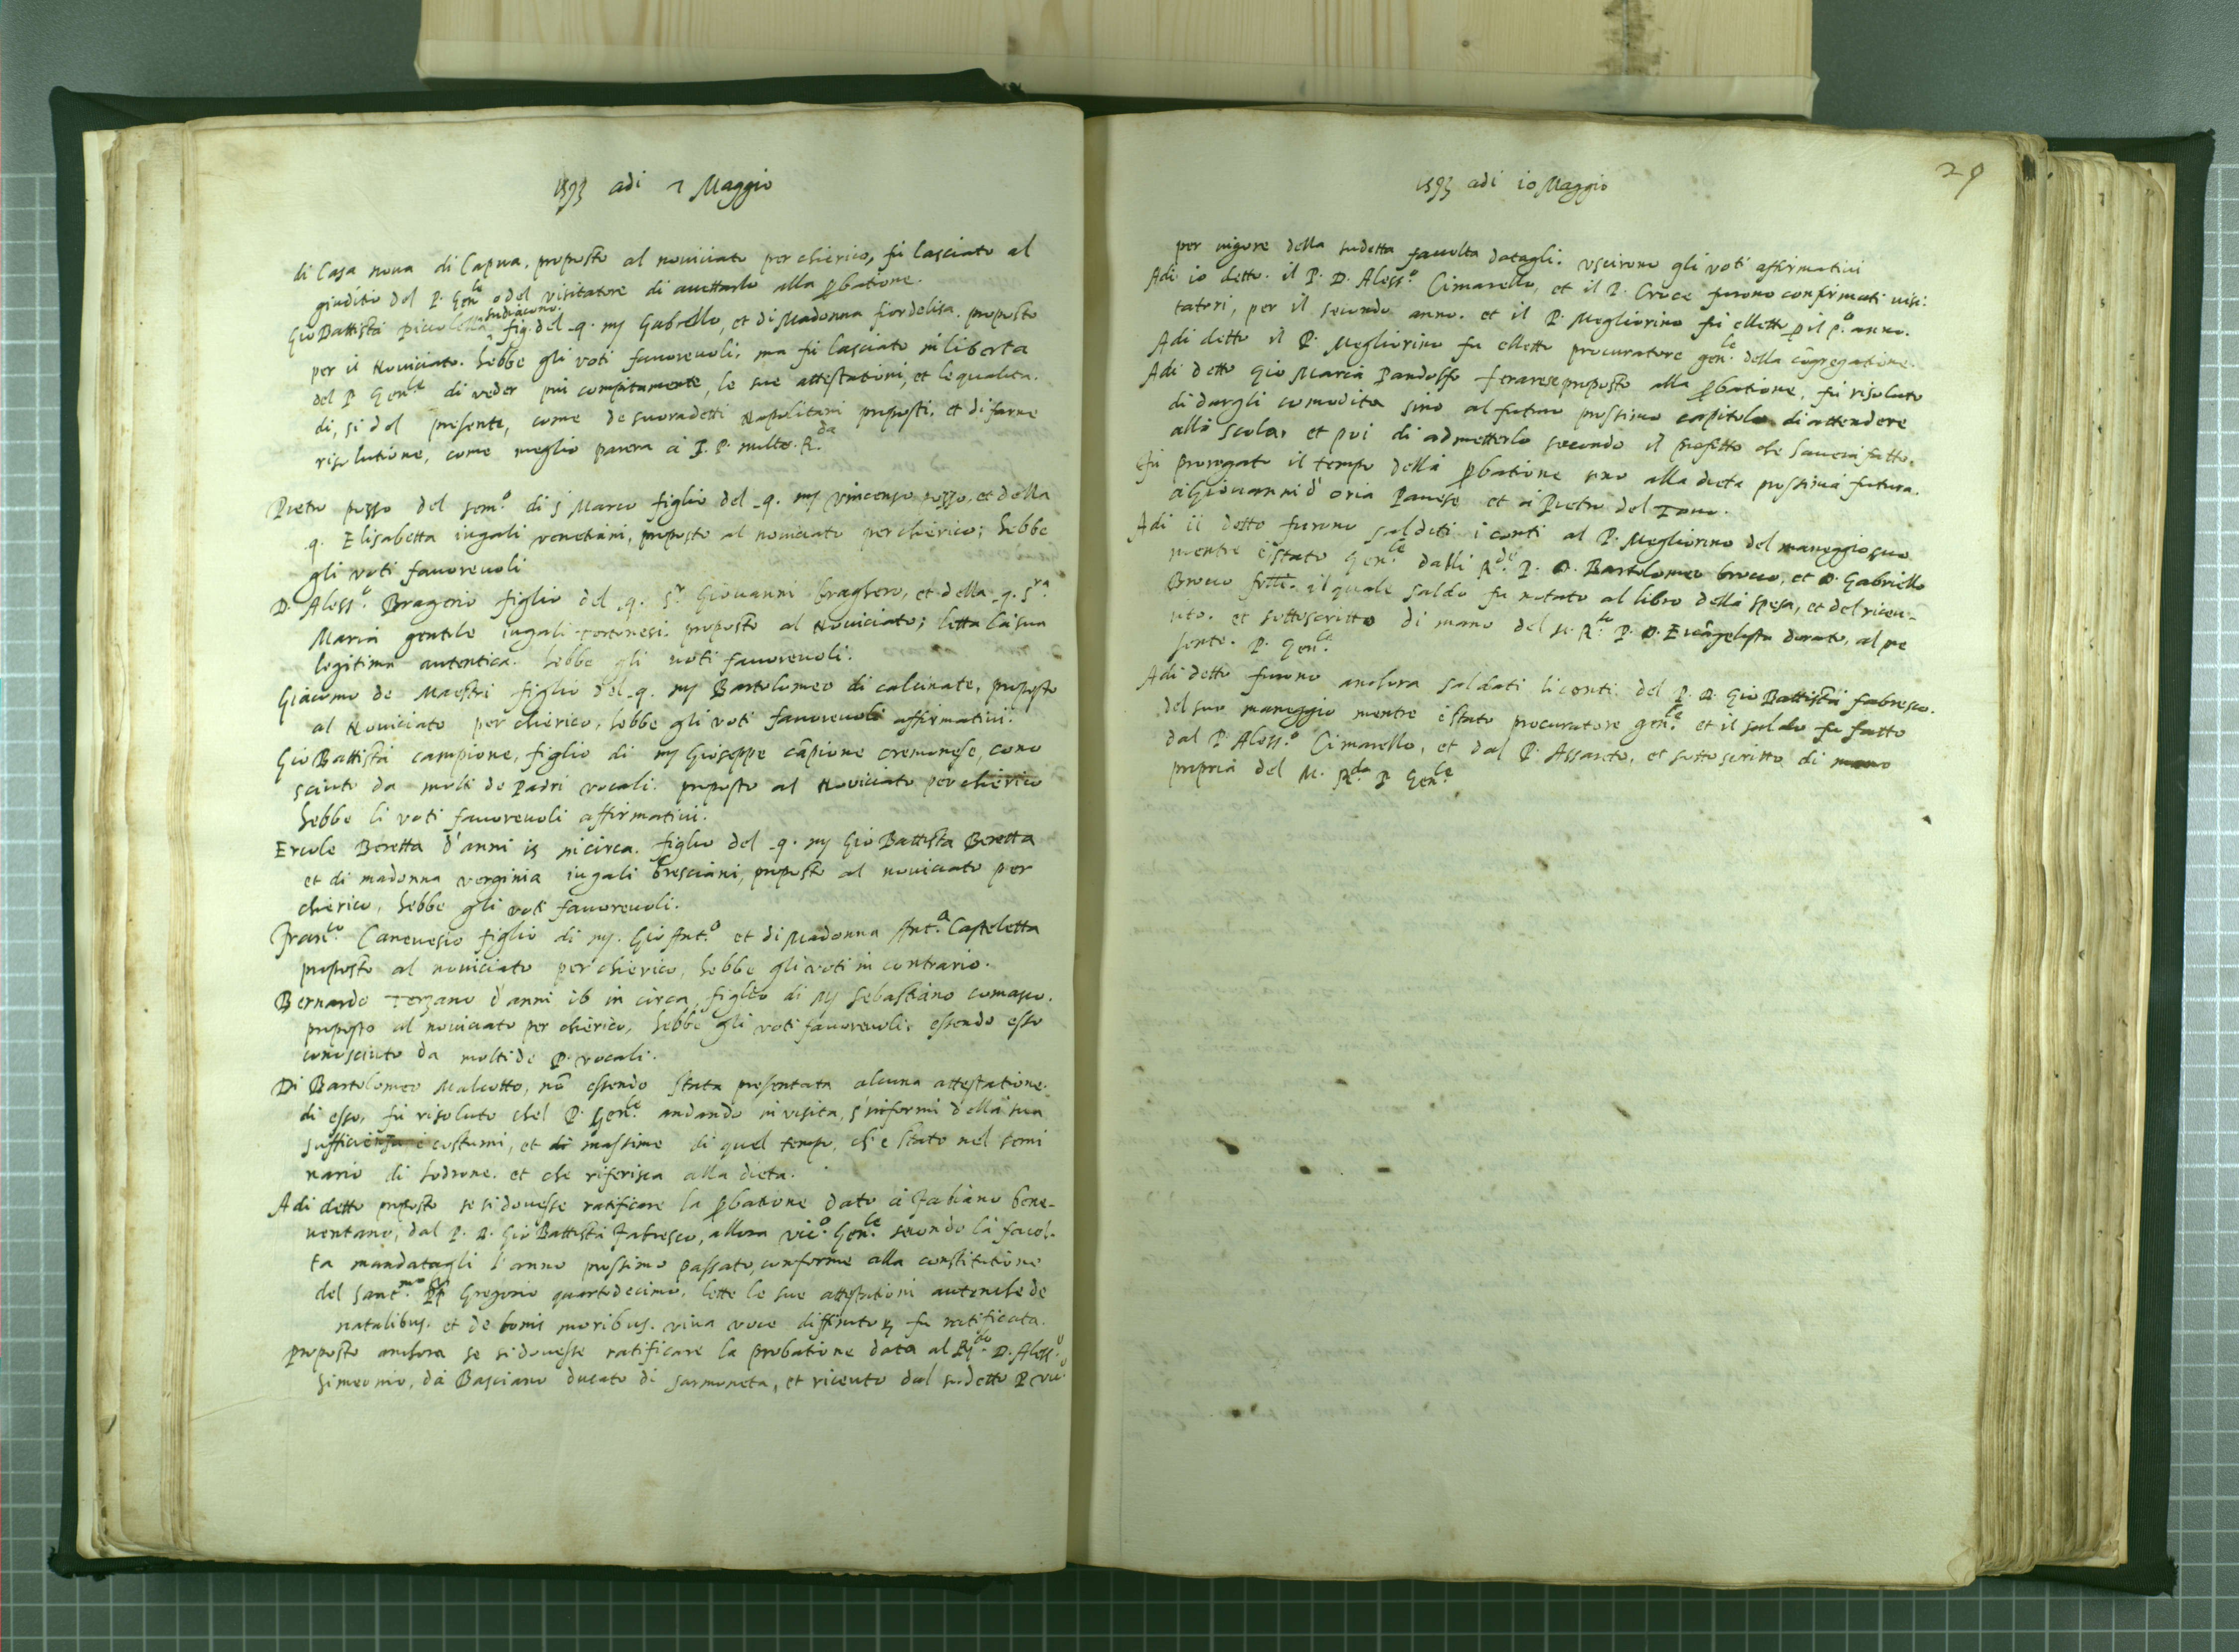 1593 adi 7 Maggio
di Casa nova di Capua. proposto al noviciato per chierico, fù lasciato al
giuditio del P. Genle o del visitatore di accettarlo alla pbatione.
Gio Battista Piccolella sudiacono. fig. del q. mʒ Gabrello, et di Madonna fiordelisa. proposto
per il Noviciato. hebbe gli voti favorevoli, ma fù lasciato in liberta
del P Genle di veder più compitamente, le sue attestationi, et le qualita.
di, si del presente, come de suoradetti Napolitani proposti. et di farne
risolutione, come meglio parera à S. P. molto. Rda
Pietro pozzo del semo di S Marco figlio del q. mʒ Vincenzo pozzo, et della
q. Elisabetta iugali venetiani, proposto al noviciato per chierico; hebbe
gli voti favorevoli
D. Alesso. Bragerio figlio del q. Sr. Giovanni braghero, et della q. Sra.
Maria gentile iugali Tortonesi. proposto al Noviciato; letta la sua
legitima autentica. hebbe gli voti favorevoli.
Giacomo de Maestri figlio del q. mʒ Bartolomeo di calcinate, proposto
al Noviciato per chierico, hebbe gli voti favorevoli affirmativi.
Gio Battista campione, figlio di mʒ Gioseppe cãpione cremonese, cono
sciuto da molti de Padri vocali. proposto al Noviciato per chierico
hebbe li voti favorevoli affirmativi.
Ercole Beretta d'anni 15 in circa. figlio del q. mʒ Gio Battista Beretta
et di madonna verginia iugali bresciani, proposto al noviciato per
chierico, hebbe gli voti favorevoli.
Franco. Canevesio figlio di mʒ. Gio Anto. et di Madonna Anta. Casteletta
proposto al noviciato per chierico, hebbe gli voti in contrario.
Bernardo Terzano d'anni 16 in circa, figlio di mʒ Sebastiano comasco.
proposto al noviciato per chierico, hebbe gli voti favorevoli, essendo esso
conosciuto da molti de P. vocali.
Di Bartolomeo Malcotto, nõ essendo stata presentata alcuna attestatione
di esso, fù risoluto chel P. Genle. andando in visita, s'informi della sua
sufficienza e costumi, et di massime di quel tempo, ch'e stato nel semi
nario di Lodrone. et che riferisca alla dieta.
Adi detto proposto se si dovesse ratificare la pbatione dato à Fabiano bene-
ventano, dal P. D. Gio Battista Fabresco, allora vico. Genle. secondo la facol-
ta mandatagli l'anno prossimo passato, conforme alla constitutione
del Santmo. Gregorio quartodecimo. lette le sue attestationi autentiche de
natalibus. et de bonis moribus. viva voce fu ratificata.
proposto anchora se si dovesse ratificare la probatione data al D. Alesso.
Simeonio, da Basciano ducato di Sarmoneta, et ricevto dal sudetto P vico
29
1593 adi 10 Maggio
per vigore della sudetta facolta datagli. uscirono gli voti affirmativi
Adi 10 detto. il P. D. Alesso. Cimarello, et il P. Croce furono confirmati visi:
tatori, per il secondo anno. et il P. Megliorino fù elletto p il po. anno.
Adi detto il P. Megliorino fu elletto procuratore genle. della cõgregatione.
Adi detto Gio Maria Pandolfo ferarese proposto alla pbatione, fù risoluto
di dargli comodita sino al futuro prossimo capitolo di attendere
allo scola, et poi di admetterlo secondo il profitto che haverà fatto.
Fù prorogato il tempo della pbatione sino alla dieta prossima futura.
à Giovanni d'oria Pavese et à Pietro del Tono.
Adi 11 detto furono saldati i conti al P. Megliorino del maneggio suo
mentre è stato Genle. dalli Rdi. P. D. Bartolomeo brocco, et D. Gabriello
Brocco frtti. il quale saldo fu notato al libro della spesa, et del ricev-
uto. et sottoscritto di mano del P. D. Evãgelista dorato, al pre
sente. P. Genle.
Adi detto furono anchora saldati li conti del P. D. Gio Battista fabresco.
del suo maneggio mentre è stato procuratore genle. et il saldo fu fatto
dal P. Alesso. Cimarello, et dal P. Assareto, et sottoscritto di mano
propria del M. Rdo. P Genle.